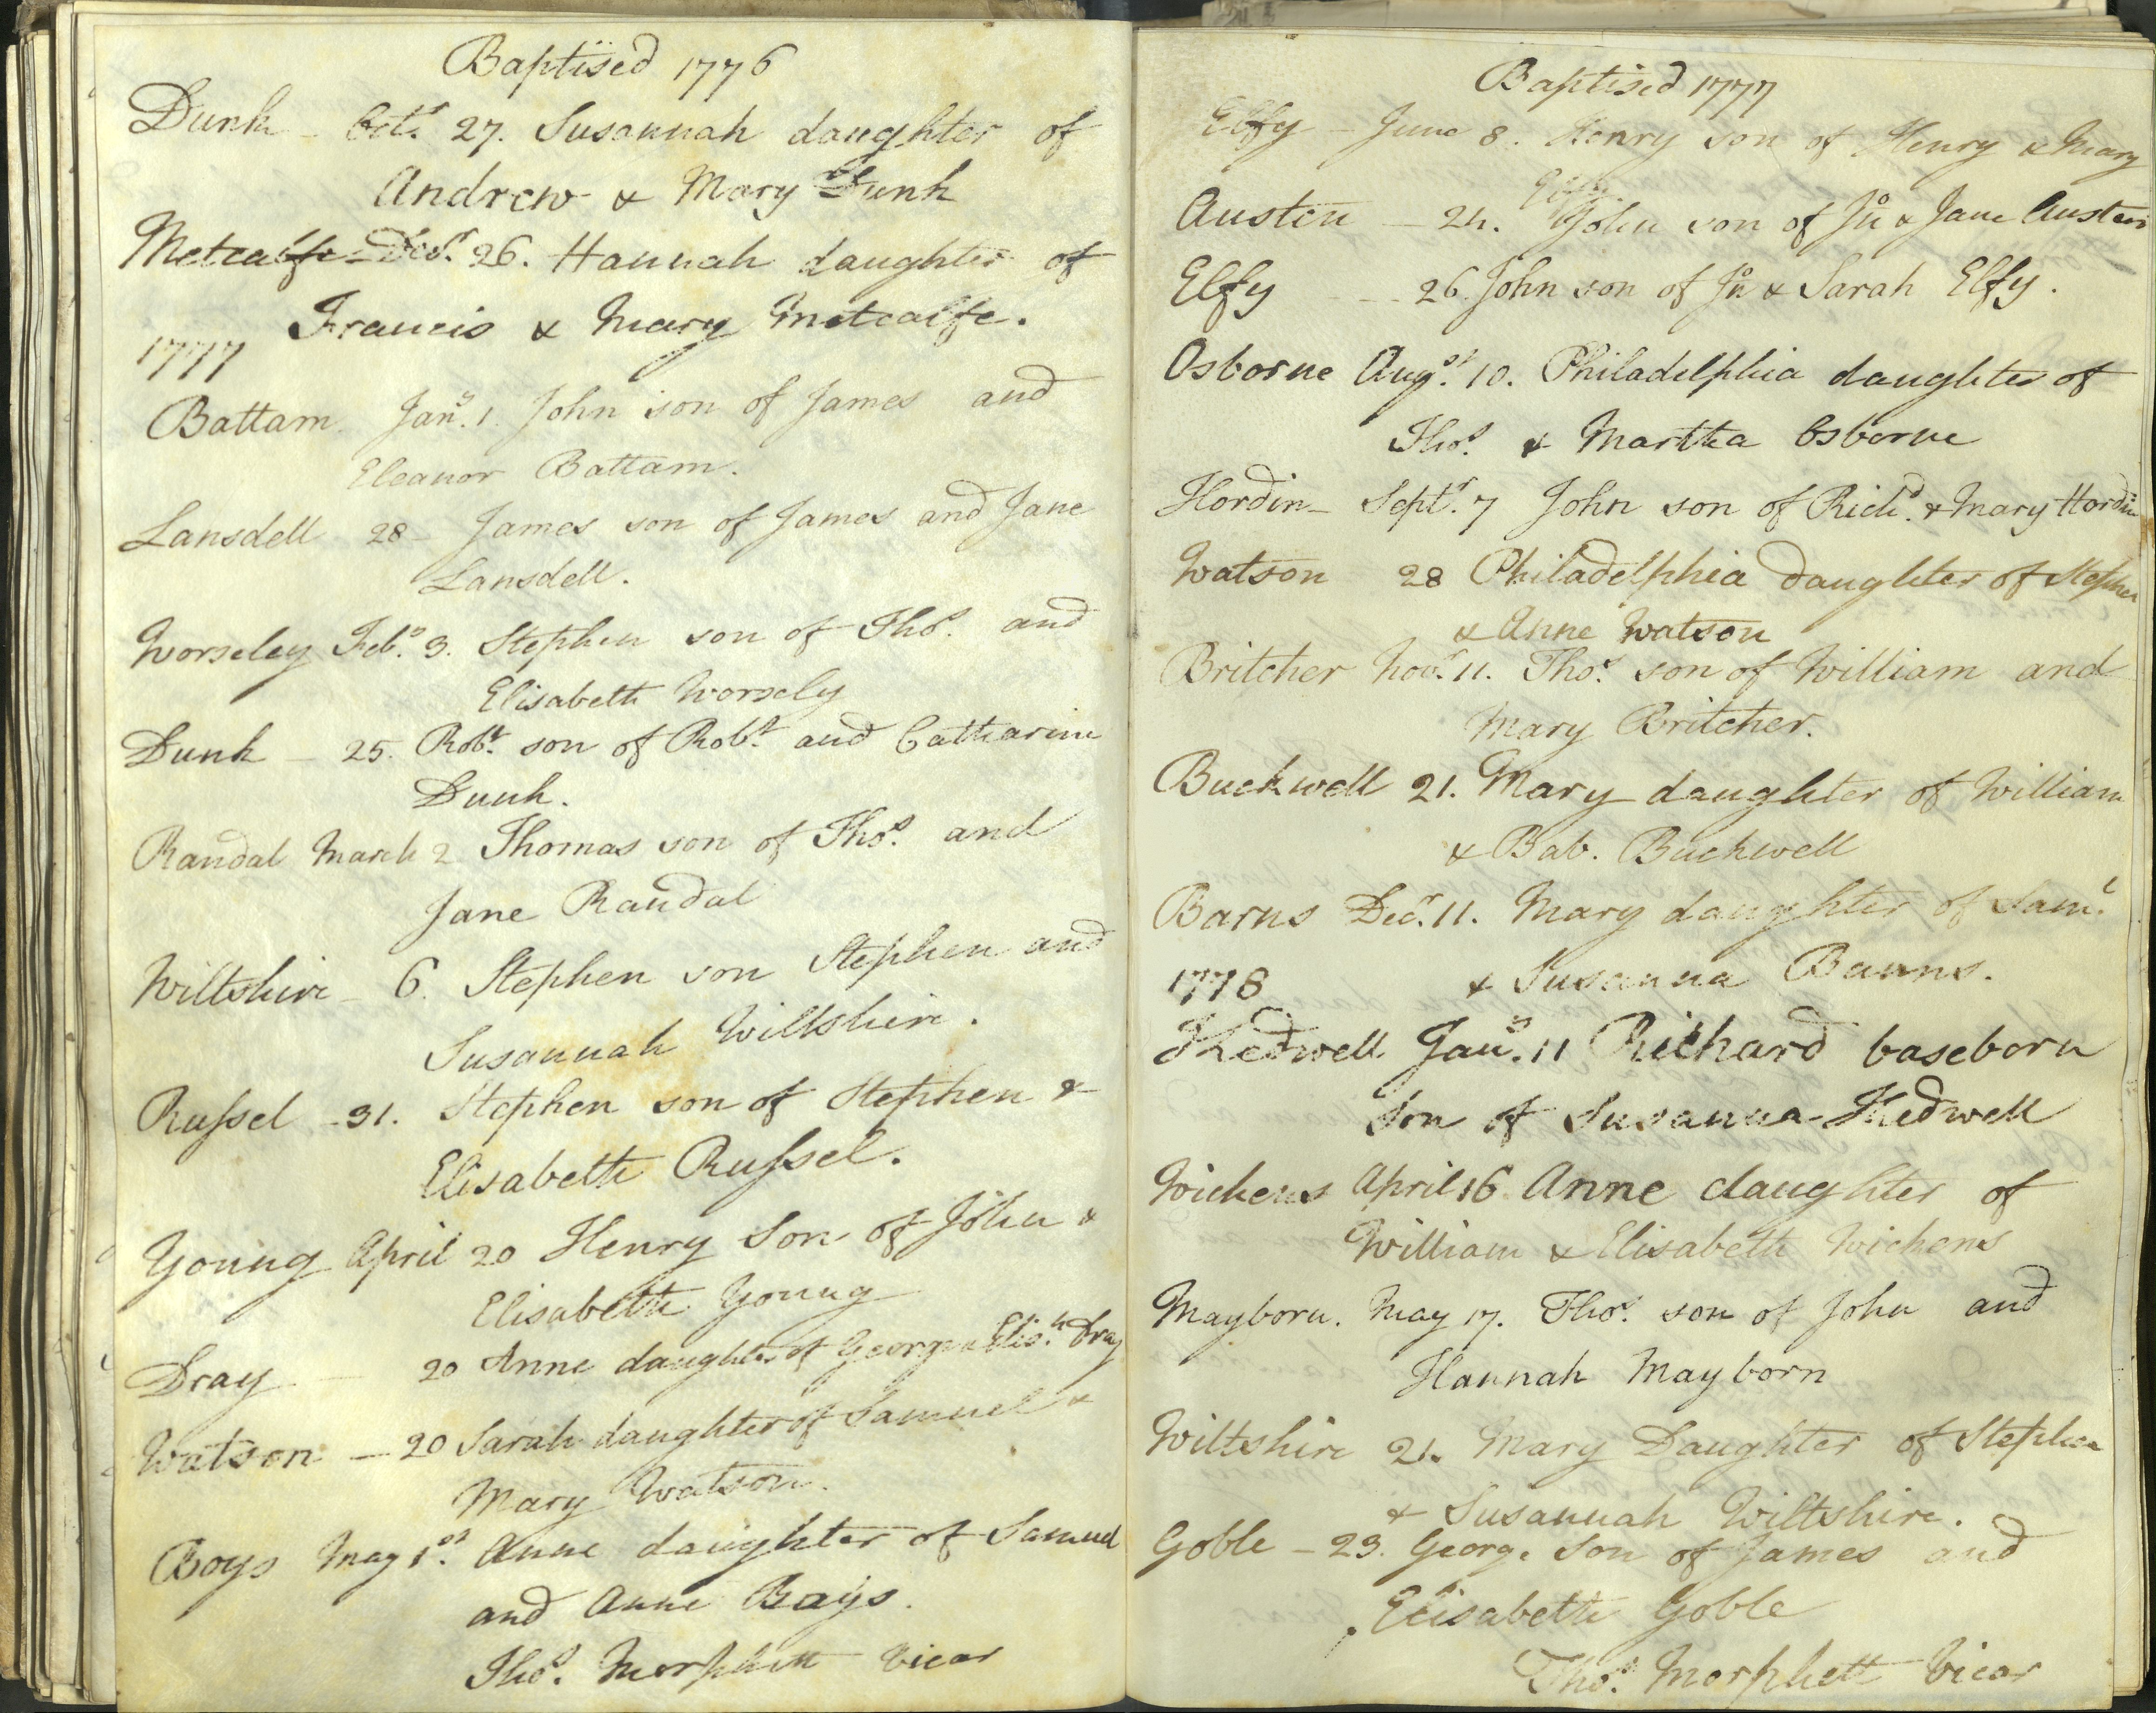 Baptised 1776
Dunk - Octr. 27. Susannah daughter of
Andrew & Mary Dunk
Metcalfe - Decr. 26. Hannah daughter of
Francis & Mary Metcalfe.
1777
Battam Jany. 1. John son of James and
Eleanor Battam.
Lansdell 28 - James son of James and Jane
Lansdell.
Worseley Feby. 3. Stephen son of Thos. and
Elisabeth Worsely
Dunk - 25. Robt. son of Robt. and Catharine
Dunk.
Randal March 2 Thomas son of Thos. and
Jane Randal
Wiltshire - 6. Stephen son Stephen and
Susannah Wiltshire.
Rufsel - 31. Stephen son of Stephen &
Elisabeth Rufsel.
Young April 20 Henry Son of John &
Elisabeth Young
Dray - 20 Anne daughter of George & Elis.h Dray
Watson - 20 Sarah daughter of Samuel &
Mary Watson.
Boys May 1st. Anne daughter of Samuel
and Anne Boys.
Thos. Morphett Vicar
Baptised 1777
Elfy - June 8. Henry son of Henry & Mary
Elfy.
Austen - 24. John son of Jn & Jane Austen
Elfy - - 26. John son of Jn & Sarah Elfy.
Osborne Augst. 10. Philadelphia daughter of
Thos. & Martha Osborne
Hordin - Septr. 7 John son of Richd. & Mary Hordin
Watson 28 Philadelphia Daughter of Stephen
& Anne Watson
Britcher Novr. 11. Thos. son of William and
Mary Britcher.
Buckwell 21. Mary daughter of William
& Bab. Buckwell
Barns Decr. 11. Mary daughter of Saml.
& Susanna Banns.
1778
Kedwell Jany. 11 Richard baseborn
Son of Susanna Kedwell
Wickens April 16 Anne daughter of
William & Elisabeth Wickens
Mayborn. May 17. Thos. son of John and
Hannah Mayborn
Wiltshire 21. Mary Daughter of Stephen
& Susannah Wiltshire.
Goble - 23. George Son of James and
Elisabeth Goble
Thos. Morphett Vicar